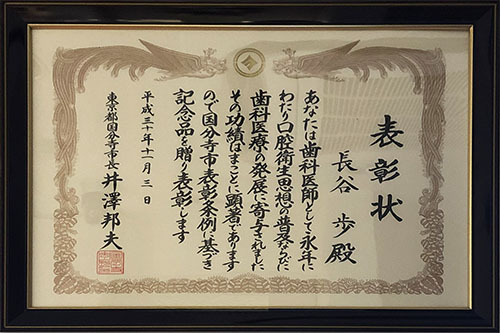 表彰状
長谷 歩 殿
あなたは歯科医師として永年に
わたり口腔衛生思想の普及ならびに
歯科医療の発展に寄与されました
その功績はまことに顕著であります
ので国分寺市表彰条例に基づき
記念品を贈り表彰します
平成三十年十一月三日
東京都国分寺市長 井澤邦夫